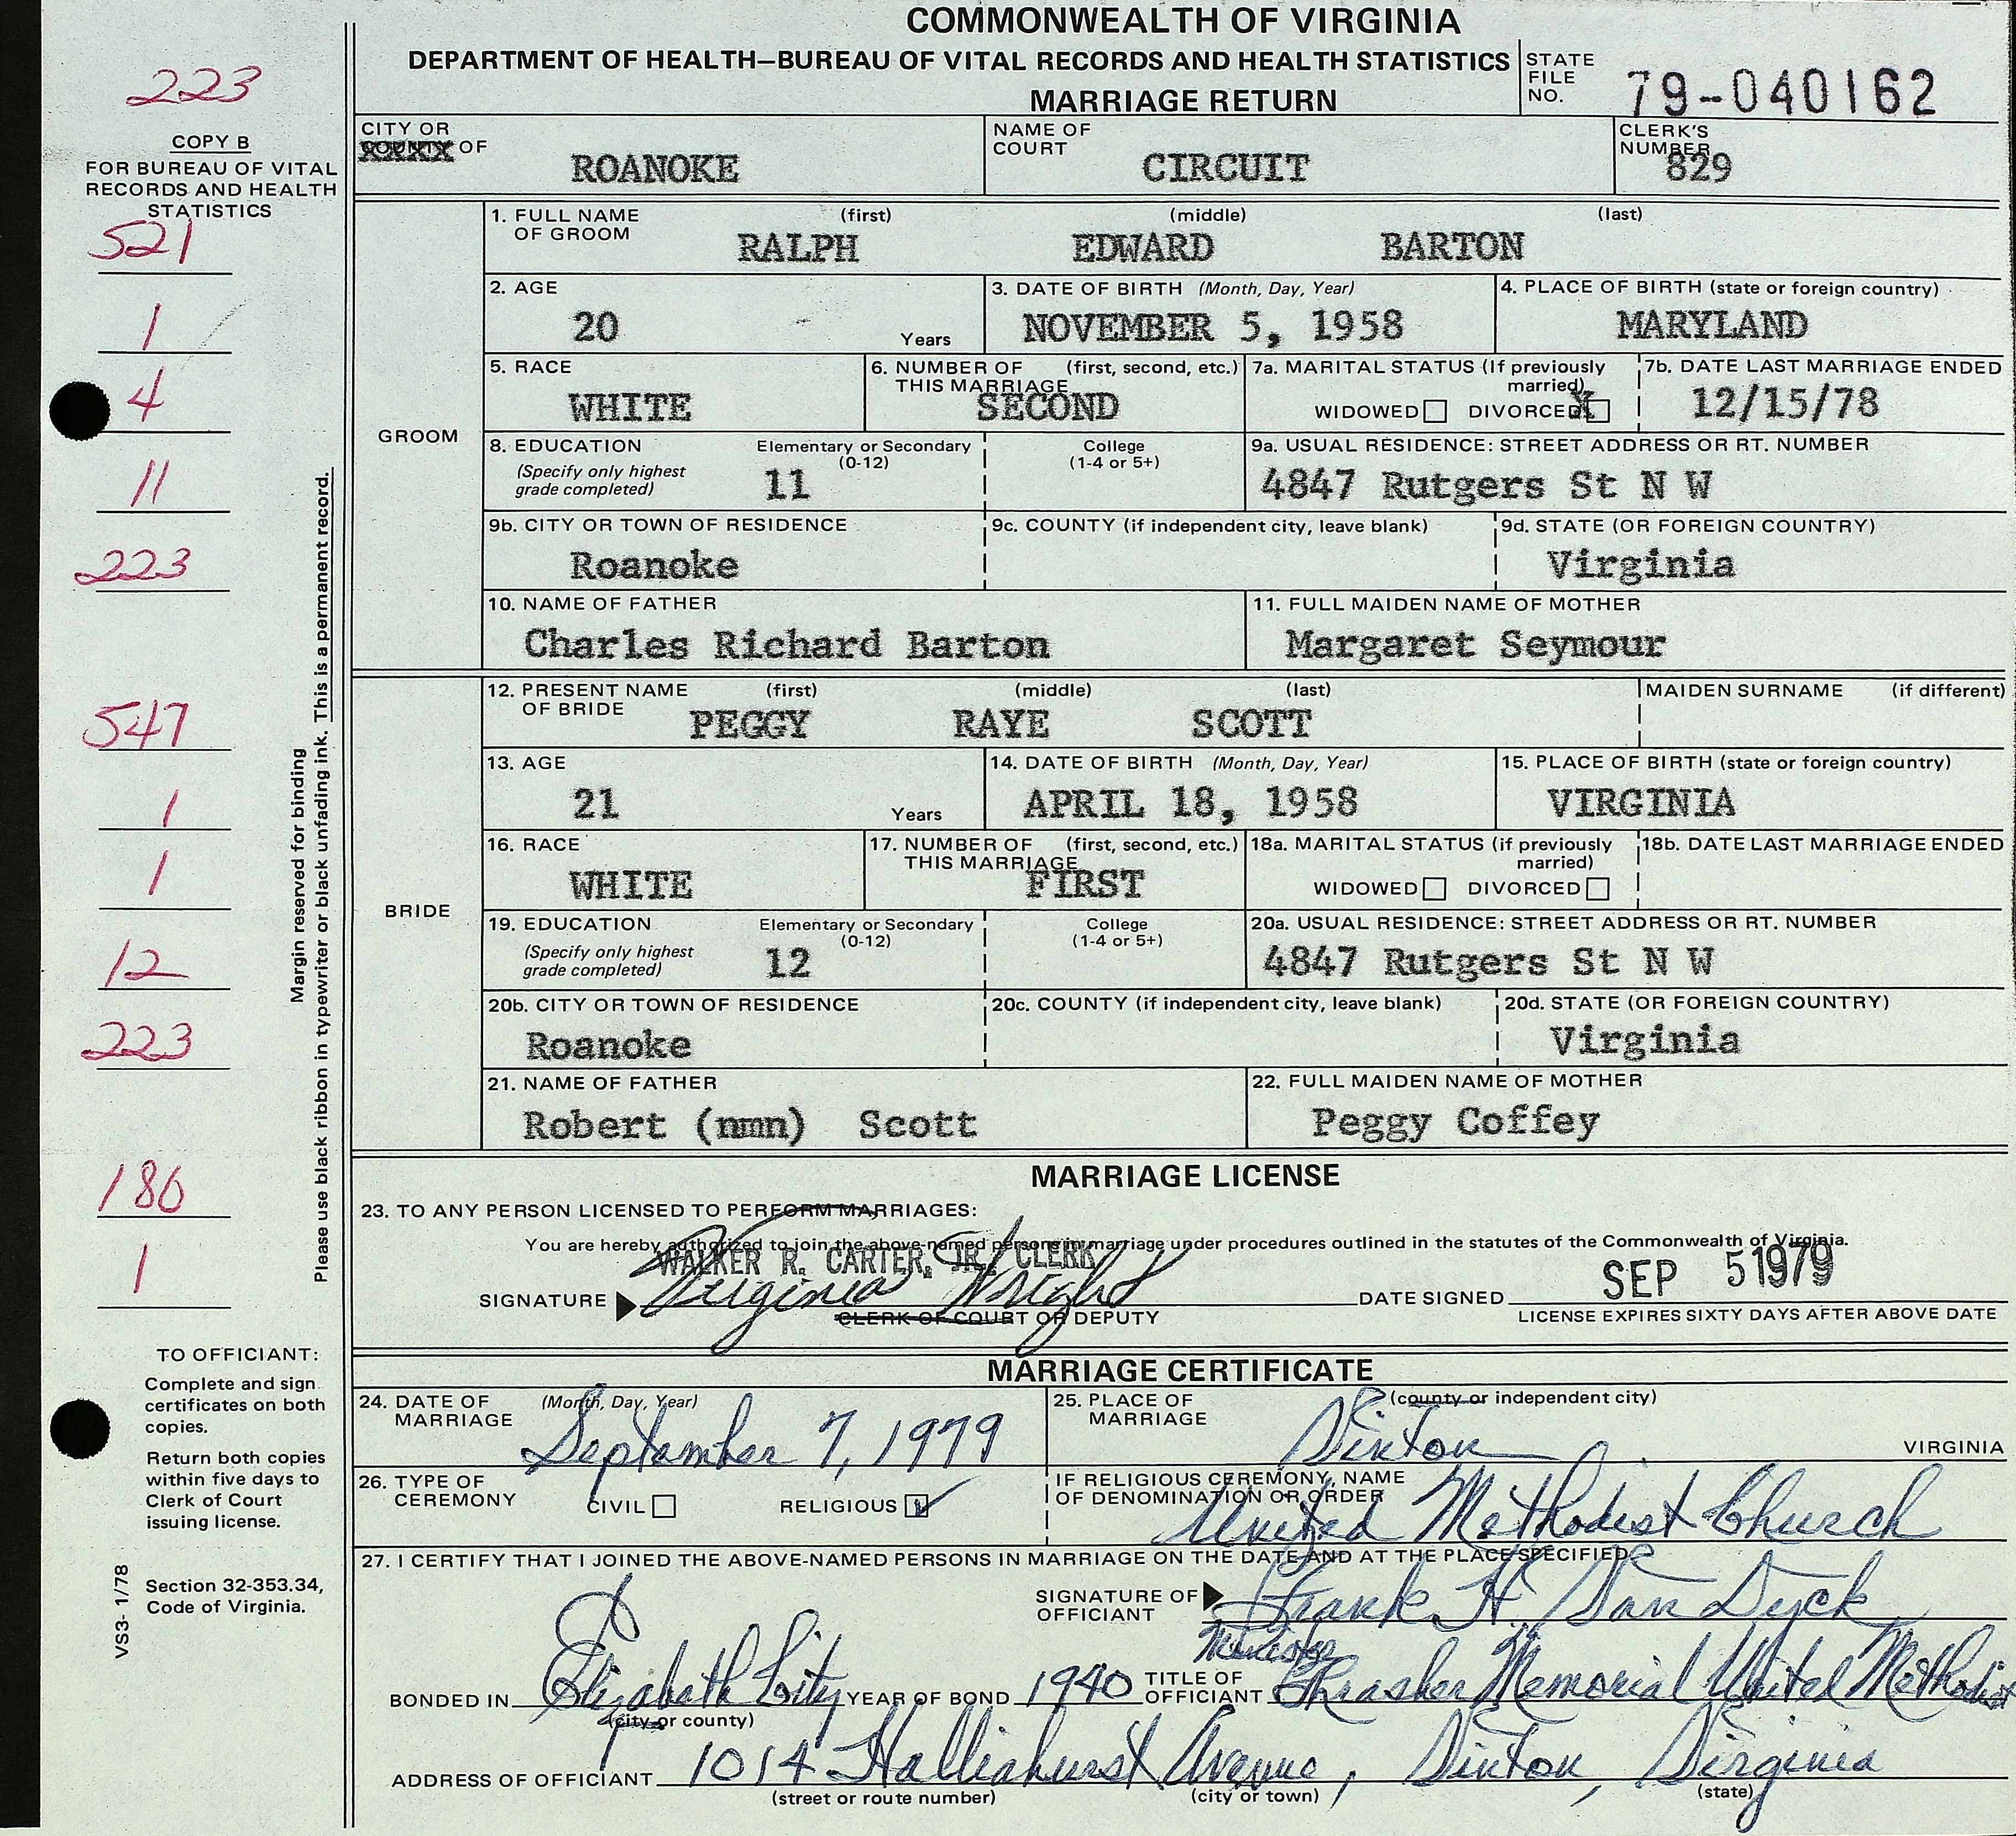 COMMONWEALTH OF VIRGINIA
DEPARTMENT OF HEALTH—BUREAU OF VITAL RECORDS AND HEALTH STATISTICS
MARRIAGE RETURN
STATE FILE NO. 79-040162
223
COPY B
FOR BUREAU OF VITAL
RECORDS AND HEALTH
STATISTICS
CITY OR COUNTY OF ROANOKE
NAME OF COURT CIRCUIT
CLERK'S NUMBER 829
521
1
4
11
223
547
1
1
12
223
186
1
Margin reserved for binding
Please use black ribbon in typewriter or black unfading ink. This is a permanent record.
GROOM
1. FULL NAME OF GROOM (first) (middle) (last)
RALPH EDWARD BARTON
2. AGE 20 Years
3. DATE OF BIRTH (Month, Day, Year) NOVEMBER 5, 1958
4. PLACE OF BIRTH (state or foreign country) MARYLAND
5. RACE WHITE
6. NUMBER OF THIS MARRIAGE (first, second, etc.) SECOND
7a. MARITAL STATUS (If previously married) WIDOWED DIVORCED X
7b. DATE LAST MARRIAGE ENDED 12/15/78
8. EDUCATION (Specify only highest grade completed) Elementary or Secondary (0-12) 11 College (1-4 or 5+)
9a. USUAL RESIDENCE: STREET ADDRESS OR RT. NUMBER 4847 Rutgers St N W
9b. CITY OR TOWN OF RESIDENCE Roanoke
9c. COUNTY (if independent city, leave blank)
9d. STATE (OR FOREIGN COUNTRY) Virginia
10. NAME OF FATHER Charles Richard Barton
11. FULL MAIDEN NAME OF MOTHER Margaret Seymour
BRIDE
12. PRESENT NAME OF BRIDE (first) (middle) (last) MAIDEN SURNAME (if different)
PEGGY RAYE SCOTT
13. AGE 21 Years
14. DATE OF BIRTH (Month, Day, Year) APRIL 18, 1958
15. PLACE OF BIRTH (state or foreign country) VIRGINIA
16. RACE WHITE
17. NUMBER OF THIS MARRIAGE (first, second, etc.) FIRST
18a. MARITAL STATUS (if previously married) WIDOWED DIVORCED
18b. DATE LAST MARRIAGE ENDED
19. EDUCATION (Specify only highest grade completed) Elementary or Secondary (0-12) 12 College (1-4 or 5+)
20a. USUAL RESIDENCE: STREET ADDRESS OR RT. NUMBER 4847 Rutgers St N W
20b. CITY OR TOWN OF RESIDENCE Roanoke
20c. COUNTY (if independent city, leave blank)
20d. STATE (OR FOREIGN COUNTRY) Virginia
21. NAME OF FATHER Robert (nmn) Scott
22. FULL MAIDEN NAME OF MOTHER Peggy Coffey
MARRIAGE LICENSE
23. TO ANY PERSON LICENSED TO PERFORM MARRIAGES:
You are hereby authorized to join the above-named persons in marriage under procedures outlined in the statutes of the Commonwealth of Virginia.
WALKER R. CARTER, JR., CLERK
SIGNATURE Virginia Wright
CLERK OF COURT OR DEPUTY
DATE SIGNED SEP 5 1979
LICENSE EXPIRES SIXTY DAYS AFTER ABOVE DATE
TO OFFICIANT:
Complete and sign
certificates on both
copies.
Return both copies
within five days to
Clerk of Court
issuing license.
Section 32-353.34,
Code of Virginia.
VS3- 1/78
MARRIAGE CERTIFICATE
24. DATE OF MARRIAGE (Month, Day, Year) September 7, 1979
25. PLACE OF MARRIAGE (county or independent city) Vinton VIRGINIA
26. TYPE OF CEREMONY CIVIL RELIGIOUS
IF RELIGIOUS CEREMONY, NAME OF DENOMINATION OR ORDER United Methodist Church
27. I CERTIFY THAT I JOINED THE ABOVE-NAMED PERSONS IN MARRIAGE ON THE DATE AND AT THE PLACE SPECIFIED
SIGNATURE OF OFFICIANT Frank H. Van Dyck
Minister
BONDED IN Elizabeth City (city or county) YEAR OF BOND 1940 TITLE OF OFFICIANT Thrasher Memorial United Methodist
ADDRESS OF OFFICIANT 1014 Halliahurst Avenue, Vinton, Virginia
(street or route number) (city or town) (state)